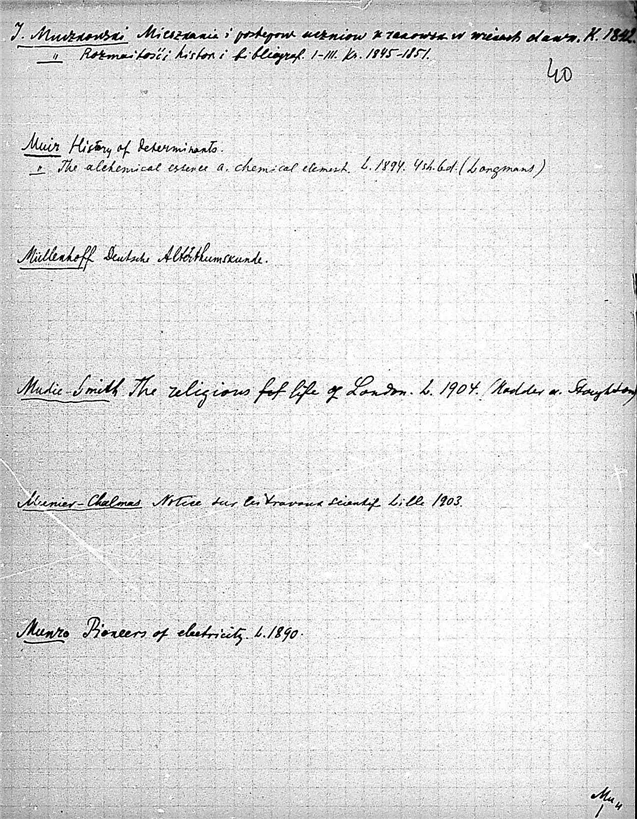 J. Muczkowski Mieszkania i postępow. uczniów krakowsk. w wiekach dawn. K. 1842.
" Rozmaitości histor. i bibliograf. I-III. Kr. 1845-1851.
40
Muir History of Determinants.
" The alchemical essence a. chemical element. L. 1894. 4sh.6d. (Longmans)
Müllenhoff Deutsche Alterthumskunde.
Mudie-Smith The religious life of London. L. 1904. (Hodder a. Stoughton)
Munier-Chalmas Notice sur les travaux scientif Lille 1903.
Munro Pioneers of electricity. L. 1890.
Mu